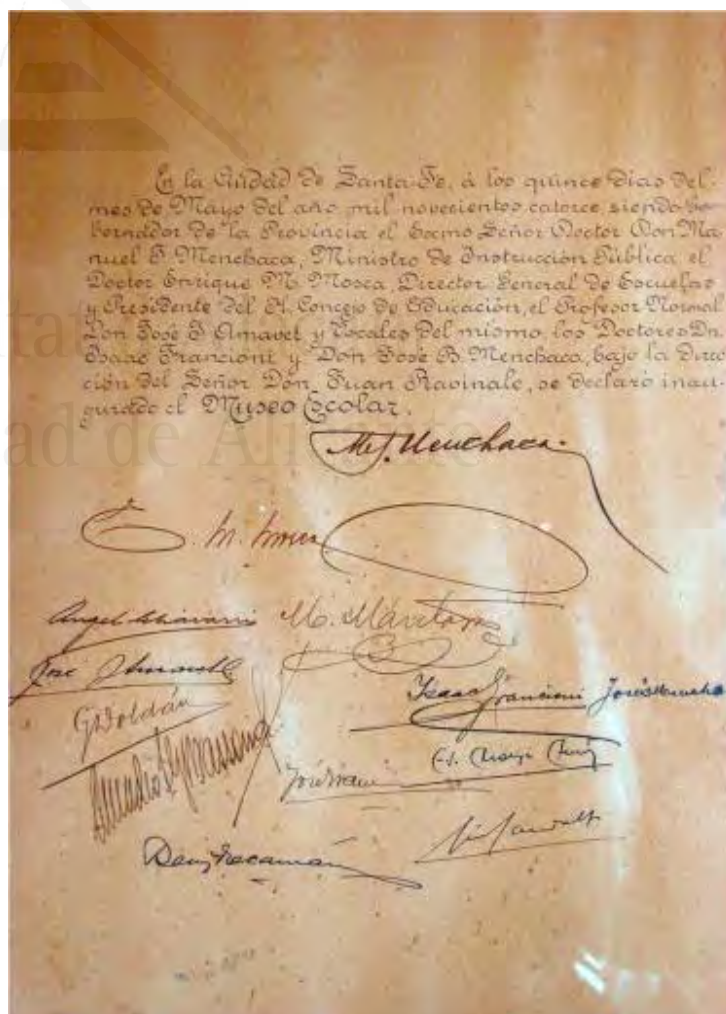 En la Ciudad de Santa Fe, á los quince días del
mes de Mayo del año mil novecientos catorce, siendo Go-
bernador de la Provincia el Excmo Señor Doctor Don Ma
nuel J. Menchaca, Ministro de Instrucción Pública el
Doctor Enrique M. Mosca, Director General de Escuelas
y Presidente del H. Concejo de Educación, el Profesor Normal
Don José J. Amavet y Vocales del mismo los Doctores Dn.
Isaac Francioni y Don José B. Menchaca, bajo la direc
ción del Señor Don Juan Ravinale, se declaró inau-
gurado el Museo Escolar.
Ml J. Menchaca
E. M. Mosca
Angel M.
José Amavet
G. Roldán
Isaac Francioni José Menchaca
José
ad de Ali